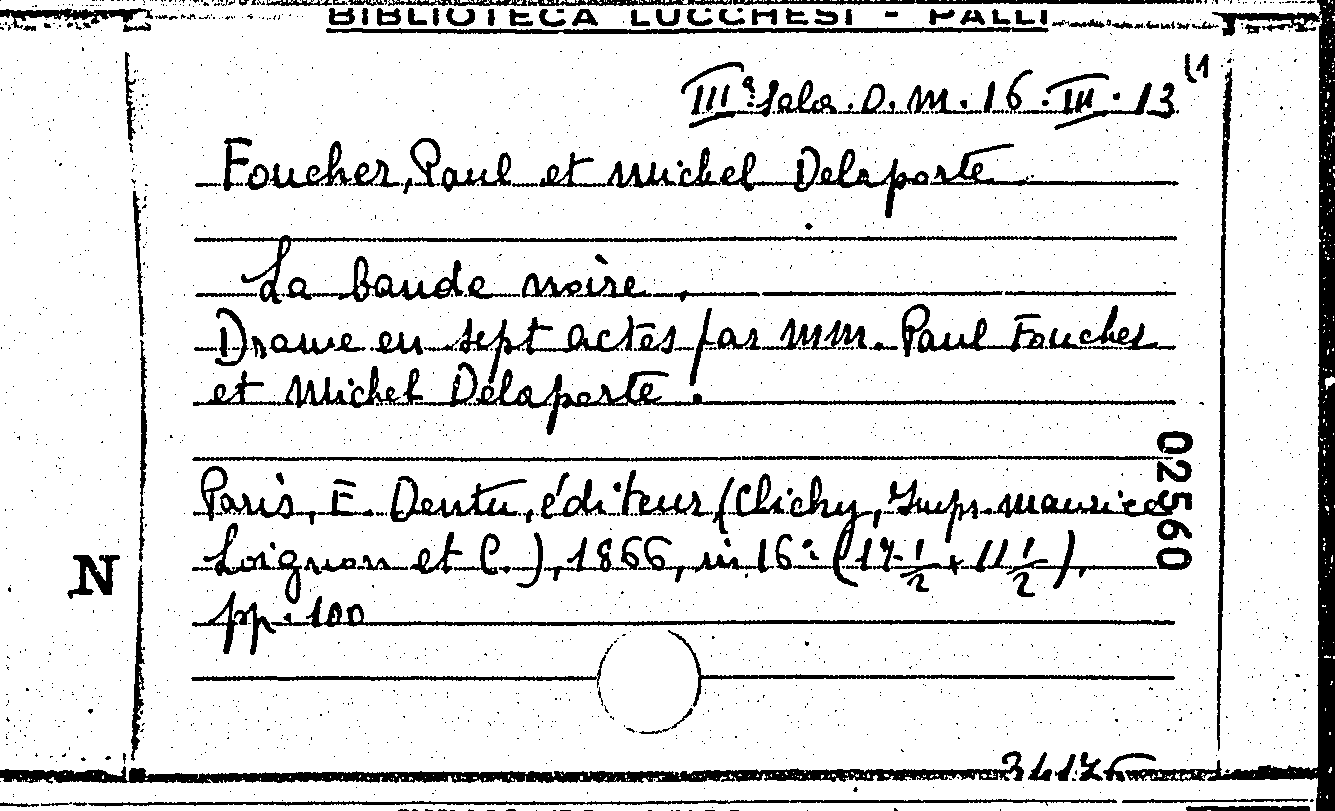 BIBLIOTECA LUCCHESI - PALLI
(1
IIIª Sala. D. M. 16. III. 13
Foucher, Paul et Michel Delaporte
La bande noire.
Drame en sept actes par MM. Paul Foucher
et Michel Delaporte.
Paris, E. Dentu, éditeur (Clichy, Imp. Maurice
Loignon et C.), 1866, in 16º (17 1/2 + 11 1/2),
pp. 100
02560
N